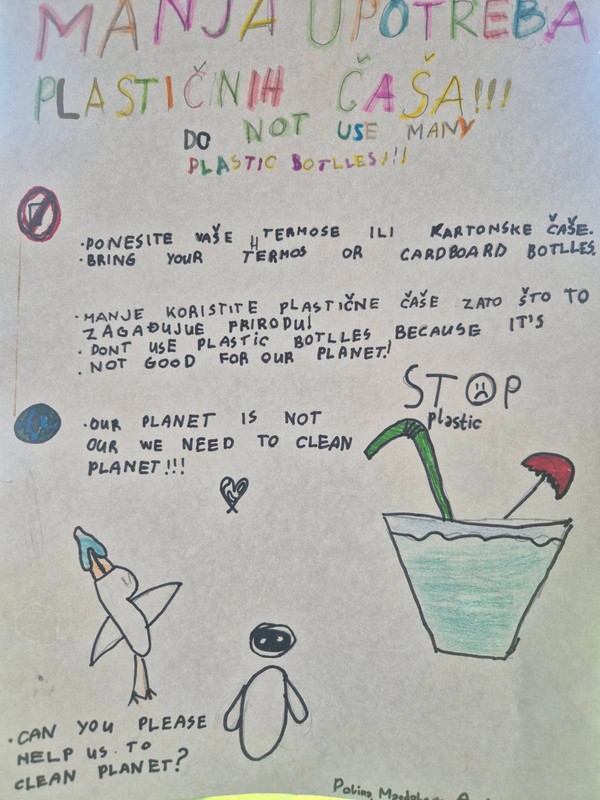 MANJA UPOTREBA
PLASTIČNIH ČAŠA!!!
DO NOT USE MANY
PLASTIC BOTLLES!!!
·PONESITE VAŠE TERMOSE ILI KARTONSKE ČAŠE.
·BRING YOUR TERMOS OR CARDBOARD BOTLLES.
·MANJE KORISTITE PLASTIČNE ČAŠE ZATO ŠTO TO
ZAGAĐUJUE PRIRODU!
·DONT USE PLASTIC BOTLLES BECAUSE IT'S
·NOT GOOD FOR OUR PLANET!
STOP
Plastic
·OUR PLANET IS NOT
OUR WE NEED TO CLEAN
PLANET!!!
·CAN YOU PLEASE
HELP US TO
CLEAN PLANET?